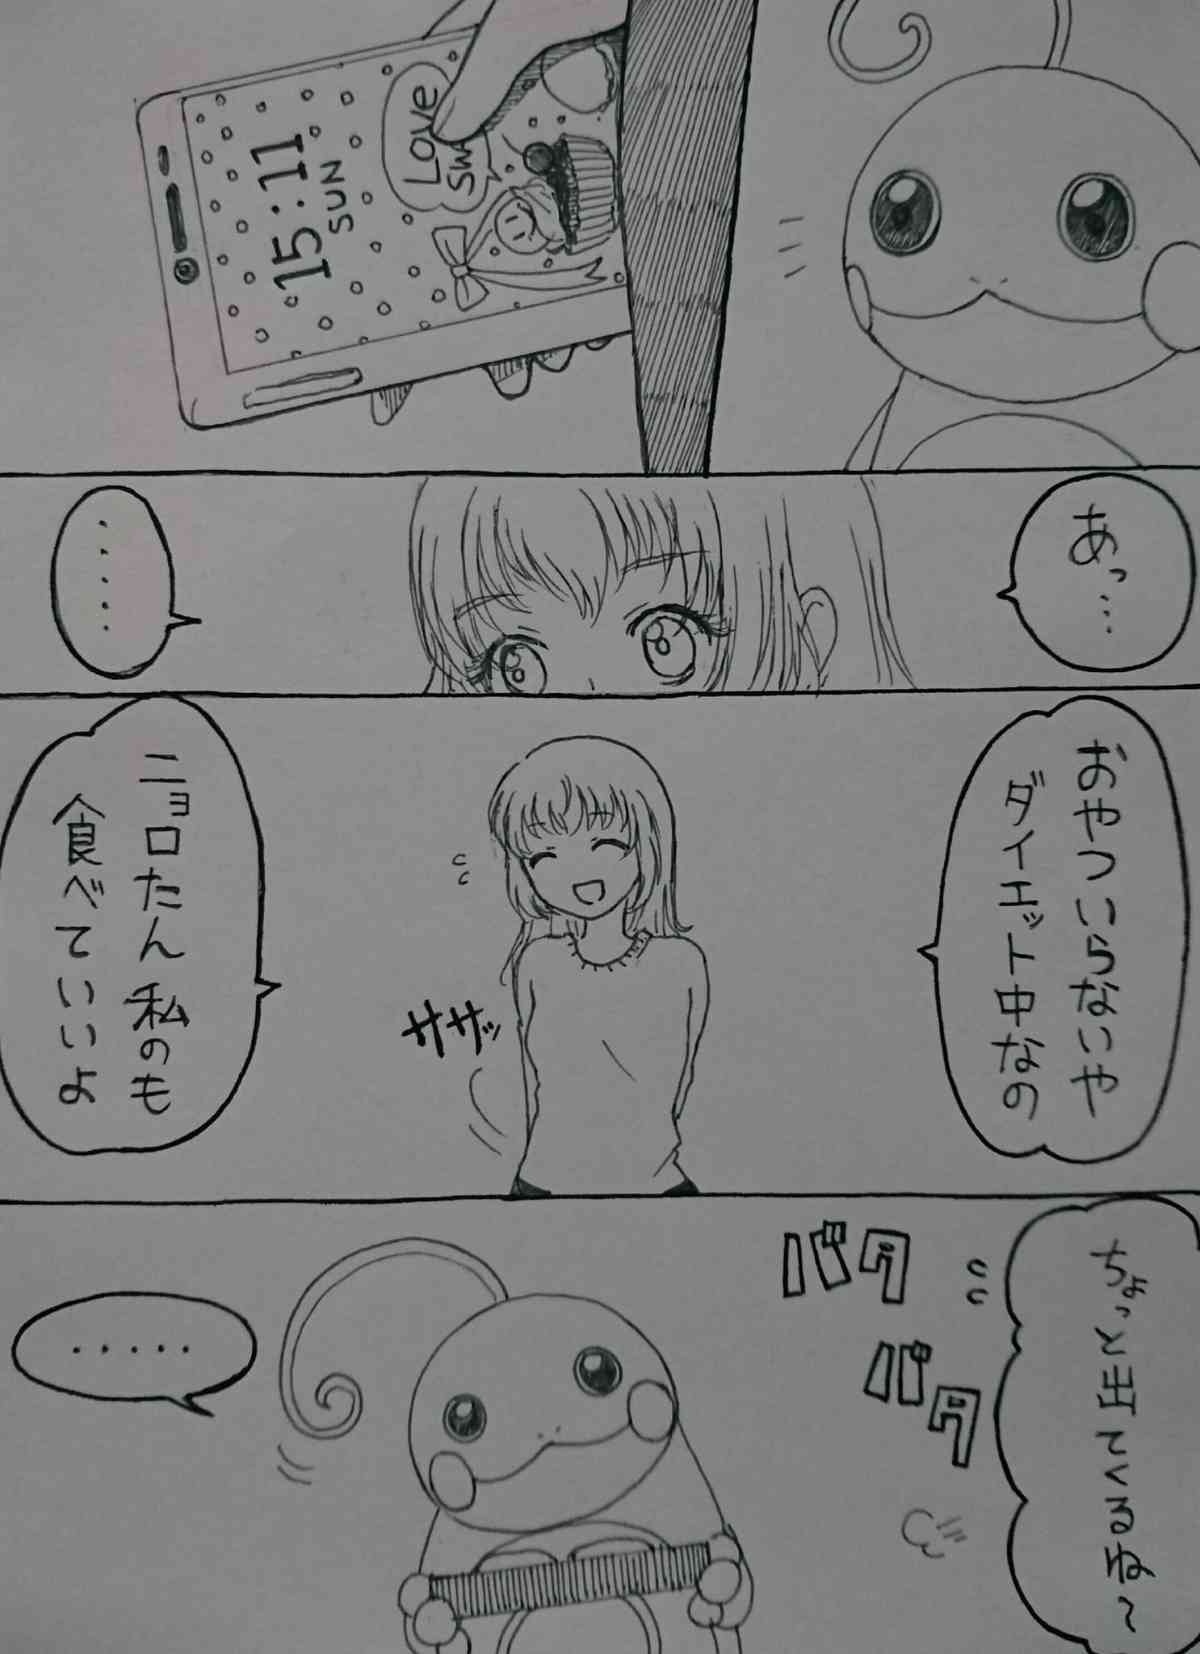 15:11
SUN
Love
Sw
あっ…
……
おやついらないや
ダイエット中なの
ササッ
ニョロたん私のも
食べていいよ
ちょっと出てくるね～
バタ
バタ
……